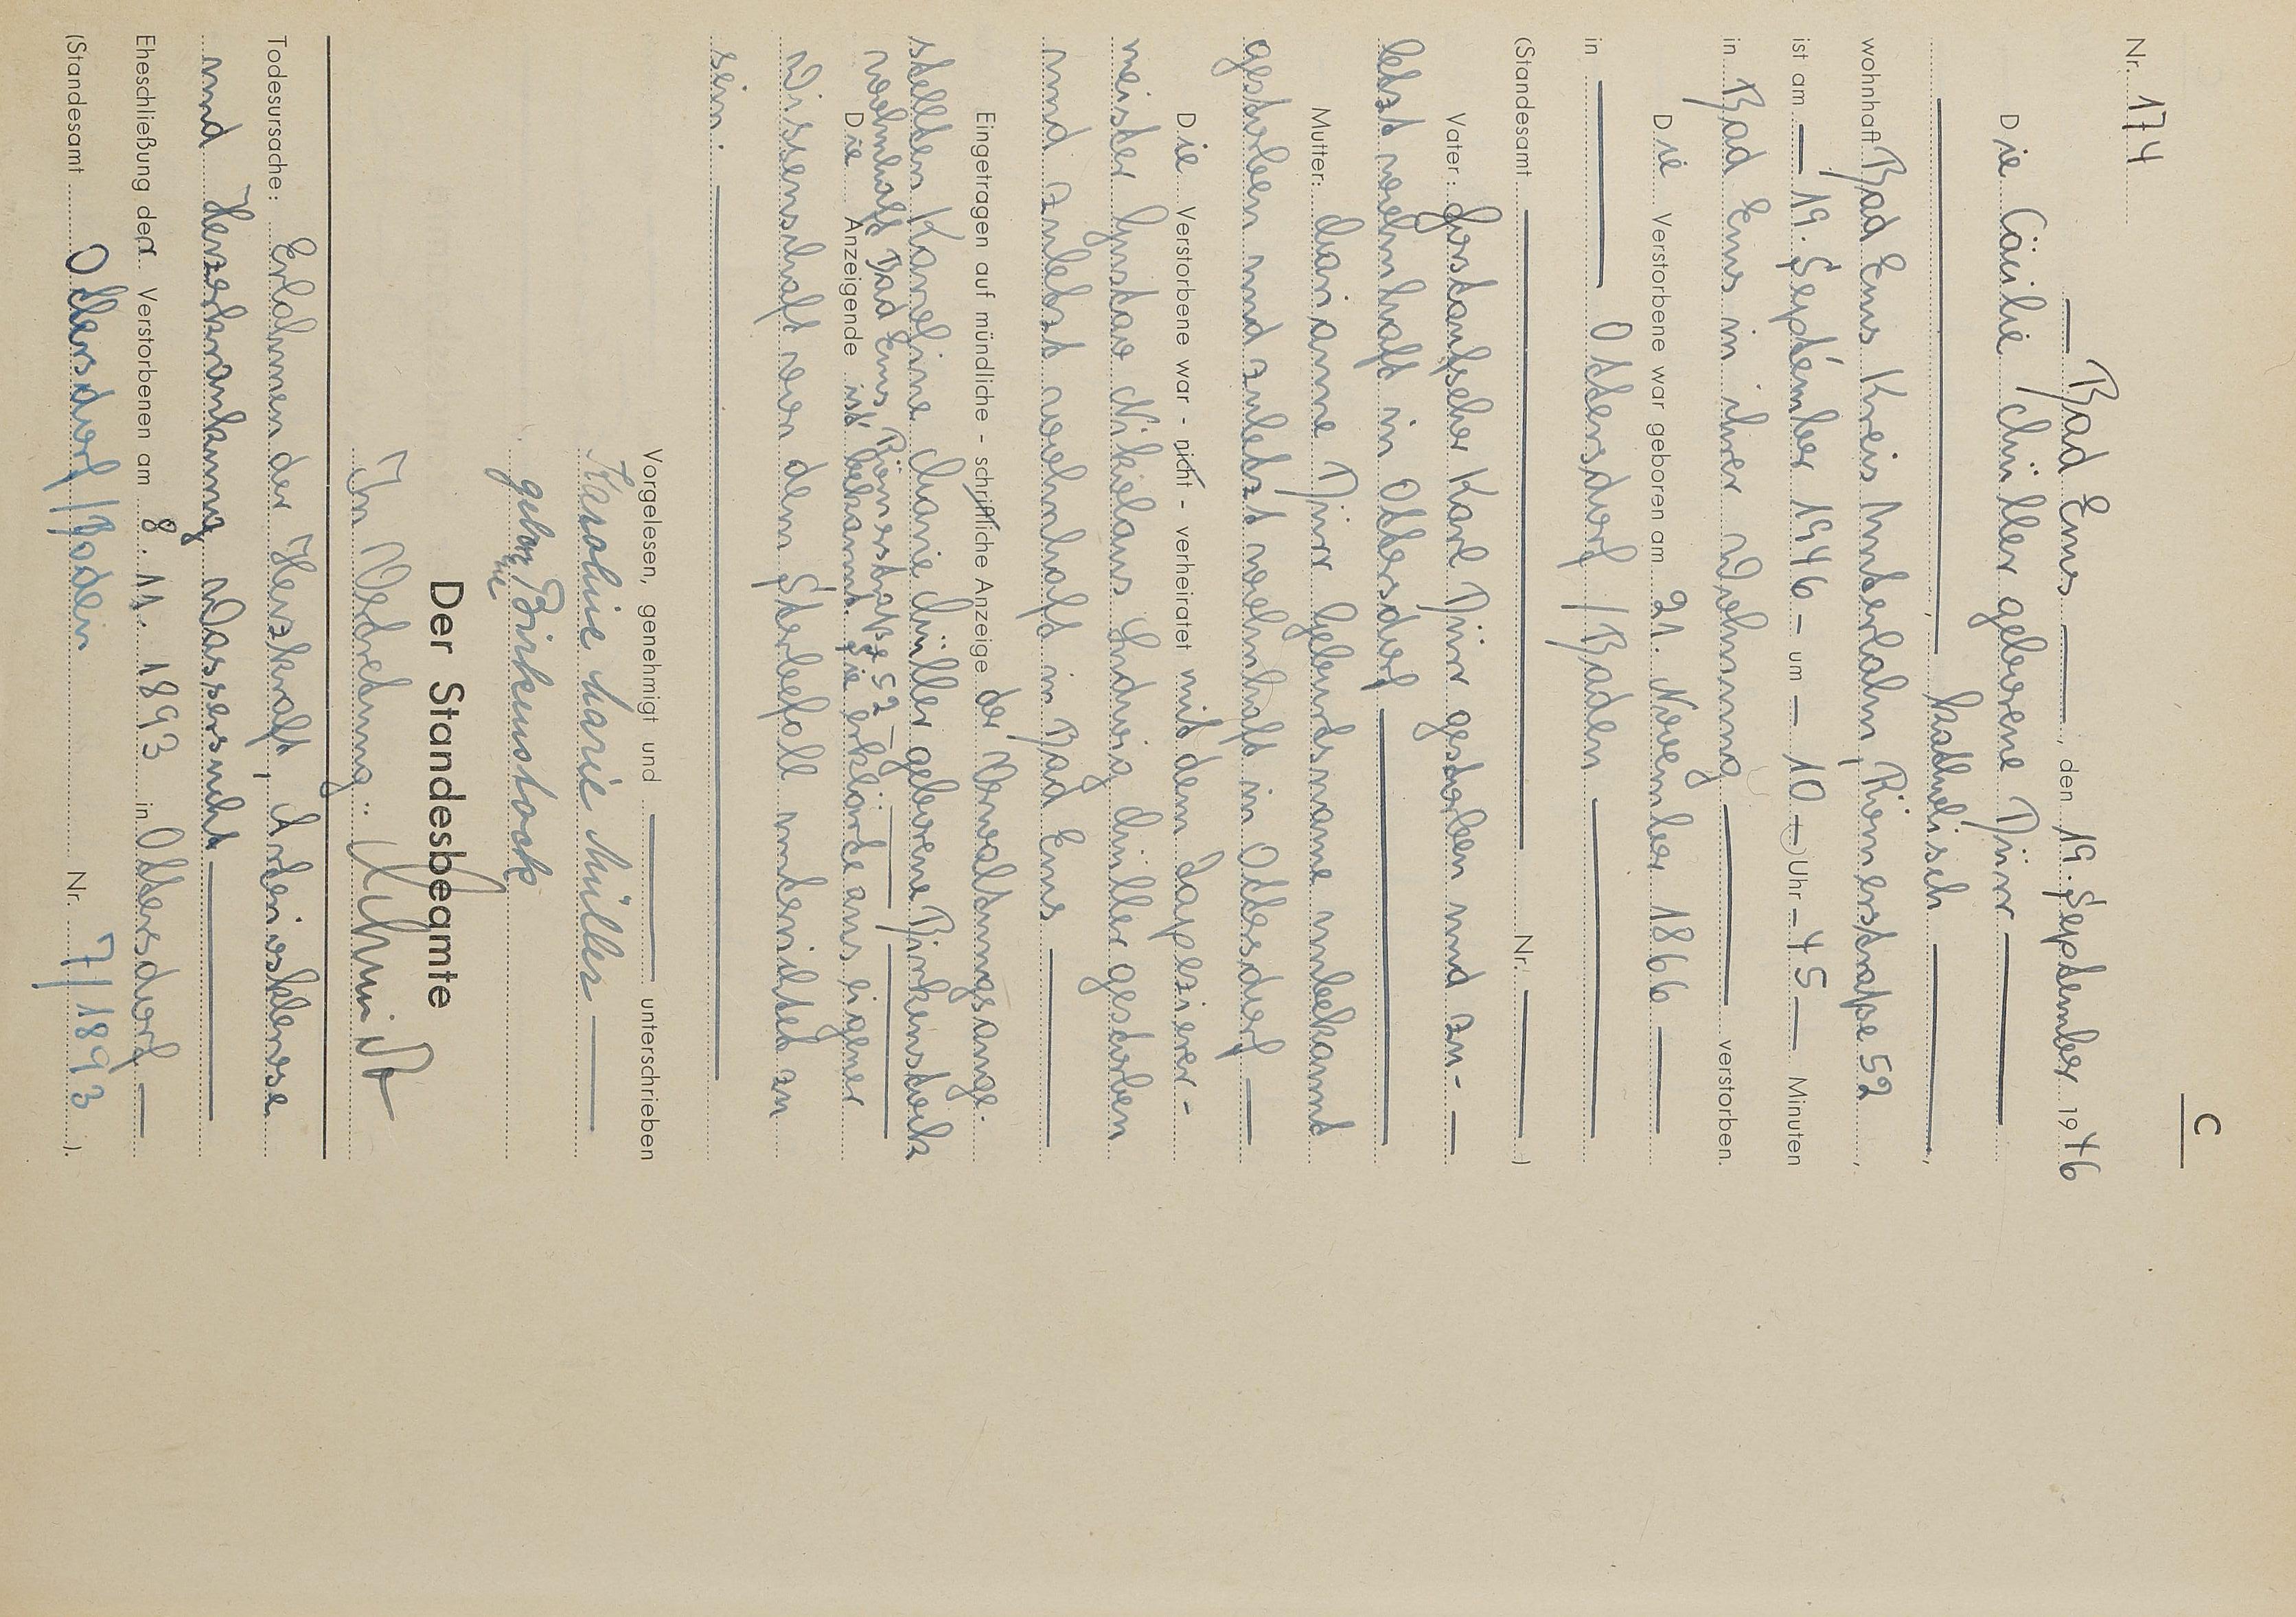 C
Nr. 174
— Bad Ems —, den 19. September 1946
Die Cäcilie Müller geborene Dürr —
—, katholisch —,
wohnhaft Bad Ems Kreis Unterlahn, Römerstraße 52,
ist am — 19. September 1946 — um — 10 — Uhr — 45 — Minuten
in Bad Ems in ihrer Wohnung — verstorben.
Die Verstorbene war geboren am 21. November 1866 —
in — Ottersdorf / Baden —
(Standesamt — Nr. —)
Vater: Forstaufseher Karl Dürr gestorben und zu- —
letzt wohnhaft in Ottersdorf —
Mutter: Marianne Dürr Geburtsname unbekannt
gestorben und zuletzt wohnhaft in Ottersdorf —
Die Verstorbene war - nicht - verheiratet mit dem Tapezierer-
meister Gustav Nikolaus Ludwig Müller gestorben
und zuletzt wohnhaft in Bad Ems —
Eingetragen auf mündliche - schriftliche Anzeige der Verwaltungsange-
stellten Karoline Marie Müller geborene Birkenstock
wohnhaft Bad Ems, Römerstraße 52 —
Die Anzeigende ist bekannt. Sie erklärte aus eigener
Wissenschaft von dem Sterbefall unterrichtet zu
sein. —
Vorgelesen, genehmigt und — unterschrieben
Karoline Marie Müller —
geborene Birkenstock
Der Standesbeamte
In Vertretung: Schmidt
Todesursache: Erlahmen der Herzkraft, Arteriosklerose
und Herzerkrankung Wassersucht —
Eheschließung der Verstorbenen am 8. 11. 1893 in Ottersdorf —
(Standesamt Ottersdorf / Baden Nr. 7/1893).